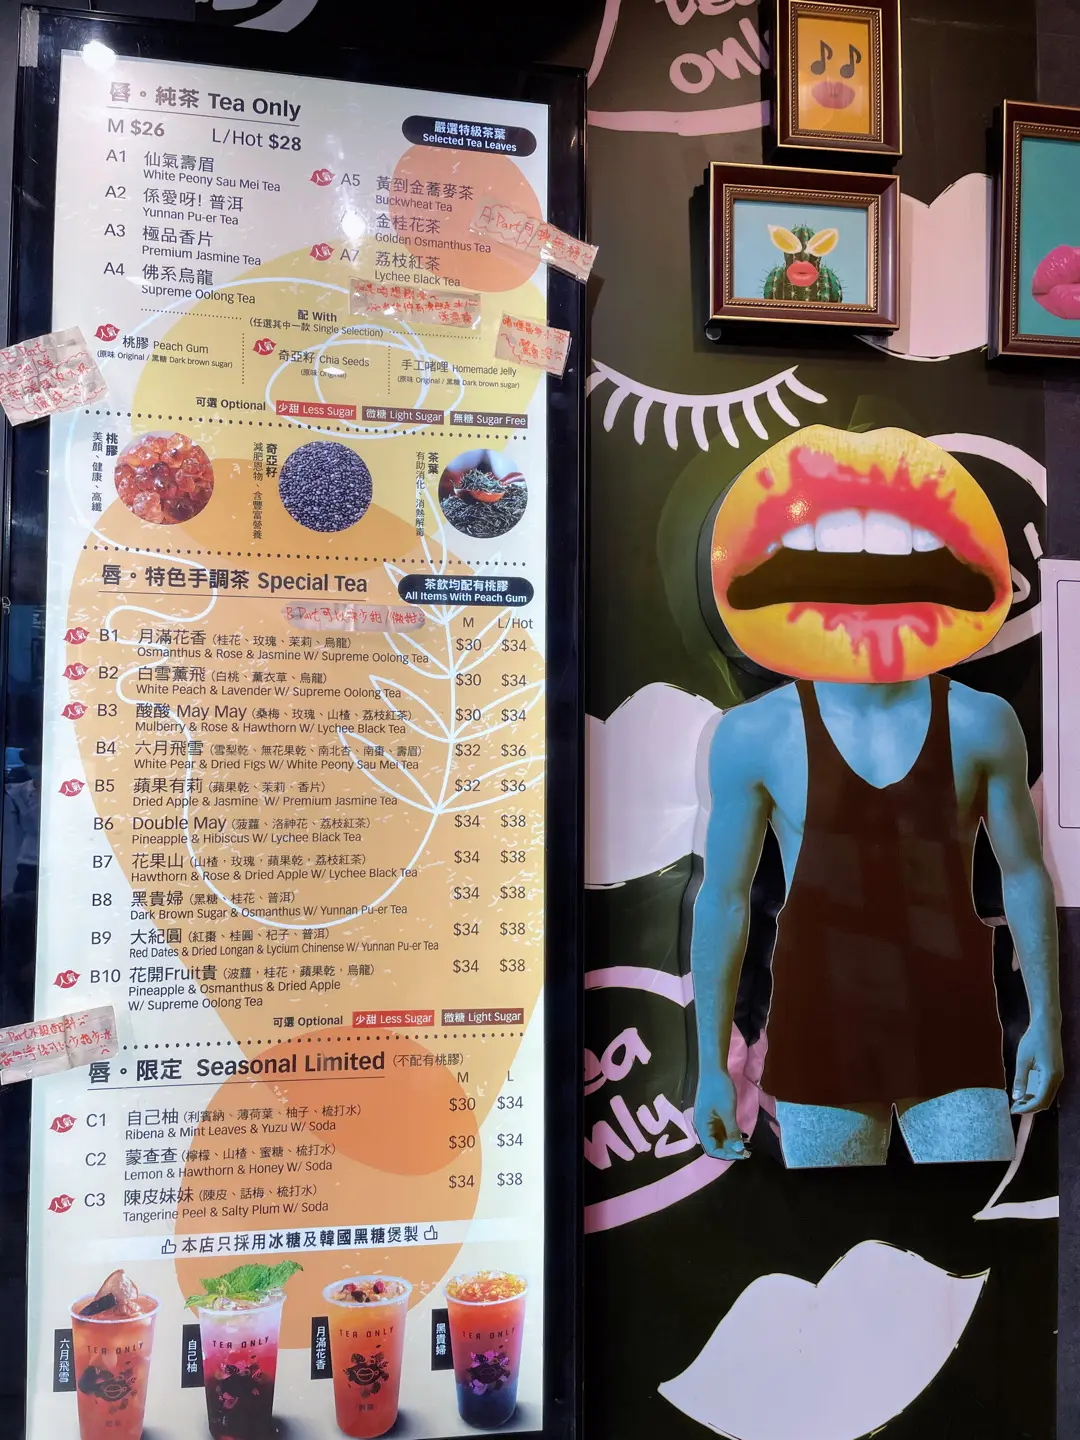 唇。純茶 Tea Only
M $26 L/Hot $28
嚴選特級茶葉
Selected Tea Leaves
A1 仙氣壽眉
White Peony Sau Mei Tea
A2 係愛呀! 普洱
Yunnan Pu-er Tea
A3 極品香片
Premium Jasmine Tea
A4 佛系烏龍
Supreme Oolong Tea
人氣 A5 黃到金蕎麥茶
Buckwheat Tea
金桂花茶
Golden Osmanthus Tea
人氣 A7 荔枝紅茶
Lychee Black Tea
配 With
(任選其中一款 Single Selection)
人氣 桃膠 Peach Gum
(原味 Original / 黑糖 Dark brown sugar)
人氣 奇亞籽 Chia Seeds
(原味 Original)
手工啫哩 Homemade Jelly
(原味 Original / 黑糖 Dark brown sugar)
可選 Optional 少甜 Less Sugar 微糖 Light Sugar 無糖 Sugar Free
桃膠
美顏、健康、高纖
奇亞籽
減肥恩物、含豐富營養
茶葉
有助消化、消熱解毒
唇。特色手調茶 Special Tea
茶飲均配有桃膠
All Items With Peach Gum
M L/Hot
人氣 B1 月滿花香 (桂花、玫瑰、茉莉、烏龍) $30 $34
Osmanthus & Rose & Jasmine W/ Supreme Oolong Tea
人氣 B2 白雪薰飛 (白桃、薰衣草、烏龍) $30 $34
White Peach & Lavender W/ Supreme Oolong Tea
人氣 B3 酸酸 May May (桑梅、玫瑰、山楂、荔枝紅茶) $30 $34
Mulberry & Rose & Hawthorn W/ Lychee Black Tea
B4 六月飛雪 (雪梨乾、無花果乾、南北杏、南棗、壽眉) $32 $36
White Pear & Dried Figs W/ White Peony Sau Mei Tea
人氣 B5 蘋果有莉 (蘋果乾、茉莉、香片) $32 $36
Dried Apple & Jasmine W/ Premium Jasmine Tea
B6 Double May (菠蘿、洛神花、荔枝紅茶) $34 $38
Pineapple & Hibiscus W/ Lychee Black Tea
B7 花果山 (山楂，玫瑰，蘋果乾，荔枝紅茶) $34 $38
Hawthorn & Rose & Dried Apple W/ Lychee Black Tea
B8 黑貴婦 (黑糖、桂花、普洱) $34 $38
Dark Brown Sugar & Osmanthus W/ Yunnan Pu-er Tea
B9 大紀圓 (紅棗、桂圓、杞子、普洱) $34 $38
Red Dates & Dried Longan & Lycium Chinense W/ Yunnan Pu-er Tea
人氣 B10 花開Fruit貴 (波蘿，桂花，蘋果乾，烏龍) $34 $38
Pineapple & Osmanthus & Dried Apple
W/ Supreme Oolong Tea
可選 Optional 少甜 Less Sugar 微糖 Light Sugar
唇。限定 Seasonal Limited (不配有桃膠)
M L
人氣 C1 自己柚 (利賓納、薄荷葉、柚子、梳打水) $30 $34
Ribena & Mint Leaves & Yuzu W/ Soda
C2 蒙查查 (檸檬、山楂、蜜糖、梳打水) $30 $34
Lemon & Hawthorn & Honey W/ Soda
人氣 C3 陳皮妹妹 (陳皮、話梅、梳打水) $34 $38
Tangerine Peel & Salty Plum W/ Soda
本店只採用冰糖及韓國黑糖煲製
六月飛雪
自己柚
月滿花香
黑貴婦
TEA ONLY
TEA ONLY
TEA ONLY
TEA ONLY
only